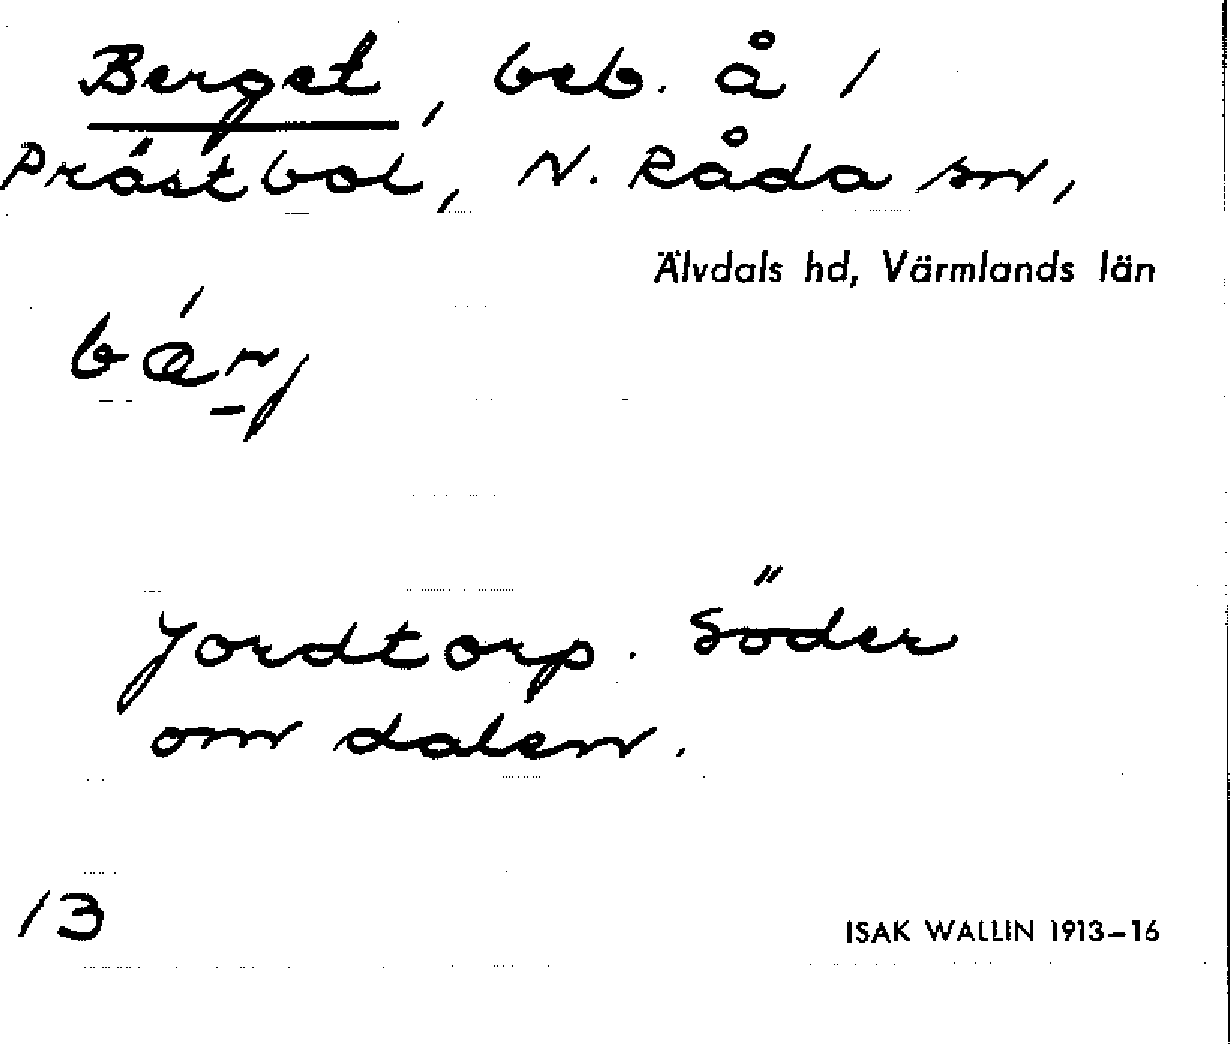 Berget, beb. å 1
Prästbol, N. Råda sn,
Älvdals hd, Värmlands län
Jordtorp. Söder
om dalen.
13
ISAK WALLIN 1913–16